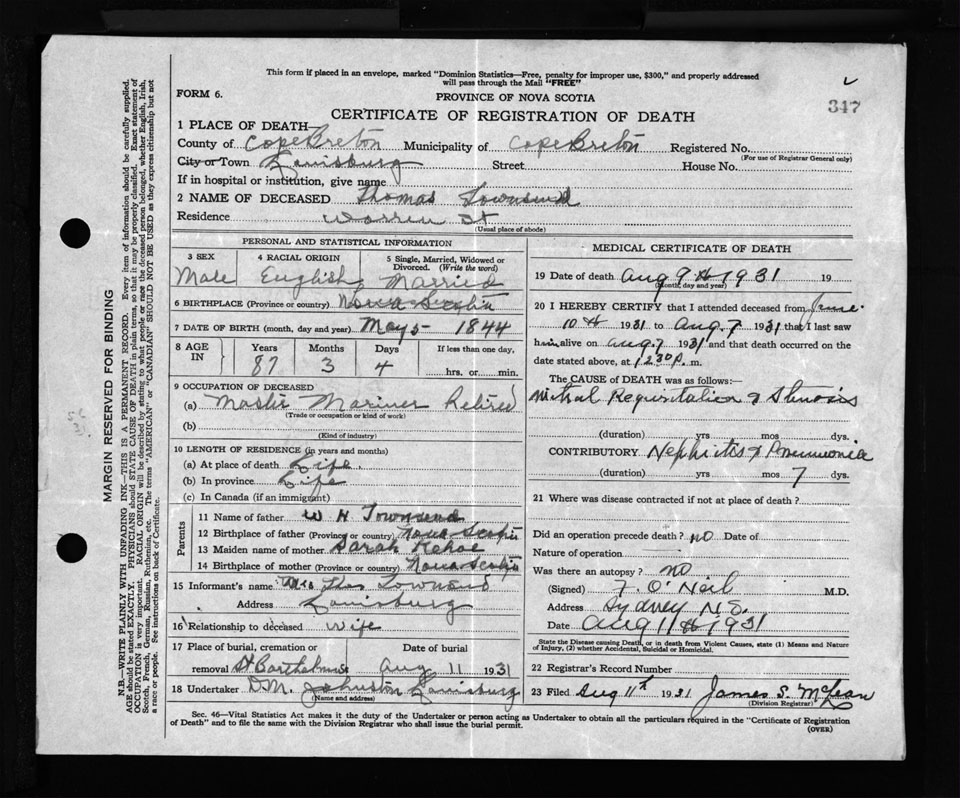 This form if placed in an envelope, marked "Dominion Statistics—Free, penalty for improper use, $300," and properly addressed
will pass through the Mail "FREE"
FORM 6.
PROVINCE OF NOVA SCOTIA
347
CERTIFICATE OF REGISTRATION OF DEATH
1 PLACE OF DEATH
County of Cape Breton Municipality of Cape Breton Registered No.
(For use of Registrar General only)
City or Town Louisburg Street House No.
If in hospital or institution, give name
2 NAME OF DECEASED Thomas Townsend
Residence Warren St
(Usual place of abode)
PERSONAL AND STATISTICAL INFORMATION
3 SEX 4 RACIAL ORIGIN 5 Single, Married, Widowed or
Divorced. (Write the word)
Male English Married
6 BIRTHPLACE (Province or country) Nova Scotia
7 DATE OF BIRTH (month, day and year) May 5 - 1844
8 AGE IN Years Months Days If less than one day,
87 3 4 hrs. or min.
9 OCCUPATION OF DECEASED
(a) Master Mariner Retired
(Trade or occupation or kind of work)
(b)
(Kind of industry)
10 LENGTH OF RESIDENCE (in years and months)
(a) At place of death Life
(b) In province Life
(c) In Canada (if an immigrant)
Parents
11 Name of father W H Townsend
12 Birthplace of father (Province or country) Nova Scotia
13 Maiden name of mother Sarah Kehoe
14 Birthplace of mother (Province or country) Nova Scotia
15 Informant's name Mrs Thos Townsend
Address Louisburg
16 Relationship to deceased Wife
17 Place of burial, cremation or Date of burial
removal St Bartholmus Aug 11 1931
18 Undertaker D.M. Johnston Louisburg
(Name and address)
MEDICAL CERTIFICATE OF DEATH
19 Date of death Aug 9th 1931 19
(Month, day and year)
20 I HEREBY CERTIFY that I attended deceased from June
10th 1931 to Aug. 7 1931 that I last saw
him alive on Aug 7 1931 and that death occurred on the
date stated above, at 12 30 P. m.
The CAUSE of DEATH was as follows:—
Mitral Regurgitation & Stenosis
(duration) yrs mos dys.
CONTRIBUTORY Nephritis & Pneumonia
(duration) yrs. mos 7 dys.
21 Where was disease contracted if not at place of death?
Did an operation precede death? no Date of
Nature of operation
Was there an autopsy? no
(Signed) F. O'Neil M.D.
Address Sydney N.S.
Date Aug 11th 1931
State the Disease causing Death, or in death from Violent Causes, state (1) Means and Nature
of Injury, (2) whether Accidental, Suicidal or Homicidal.
22 Registrar's Record Number
23 Filed Aug 11th 1931 James S. McLean
(Division Registrar)
Sec. 46—Vital Statistics Act makes it the duty of the Undertaker or person acting as Undertaker to obtain all the particulars required in the "Certificate of Registration
of Death" and to file the same with the Division Registrar who shall issue the burial permit.
(OVER)
MARGIN RESERVED FOR BINDING
N.B.—WRITE PLAINLY WITH UNFADING INK—THIS IS A PERMANENT RECORD. Every item of information should be carefully supplied.
AGE should be stated EXACTLY. PHYSICIANS should STATE CAUSE OF DEATH in plain terms, so that it may be properly classified. Exact statement of
OCCUPATION is very important. RACIAL ORIGIN will be described by stating to what people or race the deceased person belonged, whether English, Irish,
Scotch, French, German, Russian, Ruthenian, etc. The terms "AMERICAN" or "CANADIAN" SHOULD NOT BE USED as they express citizenship but not
a race or people. See instructions on back of Certificate.